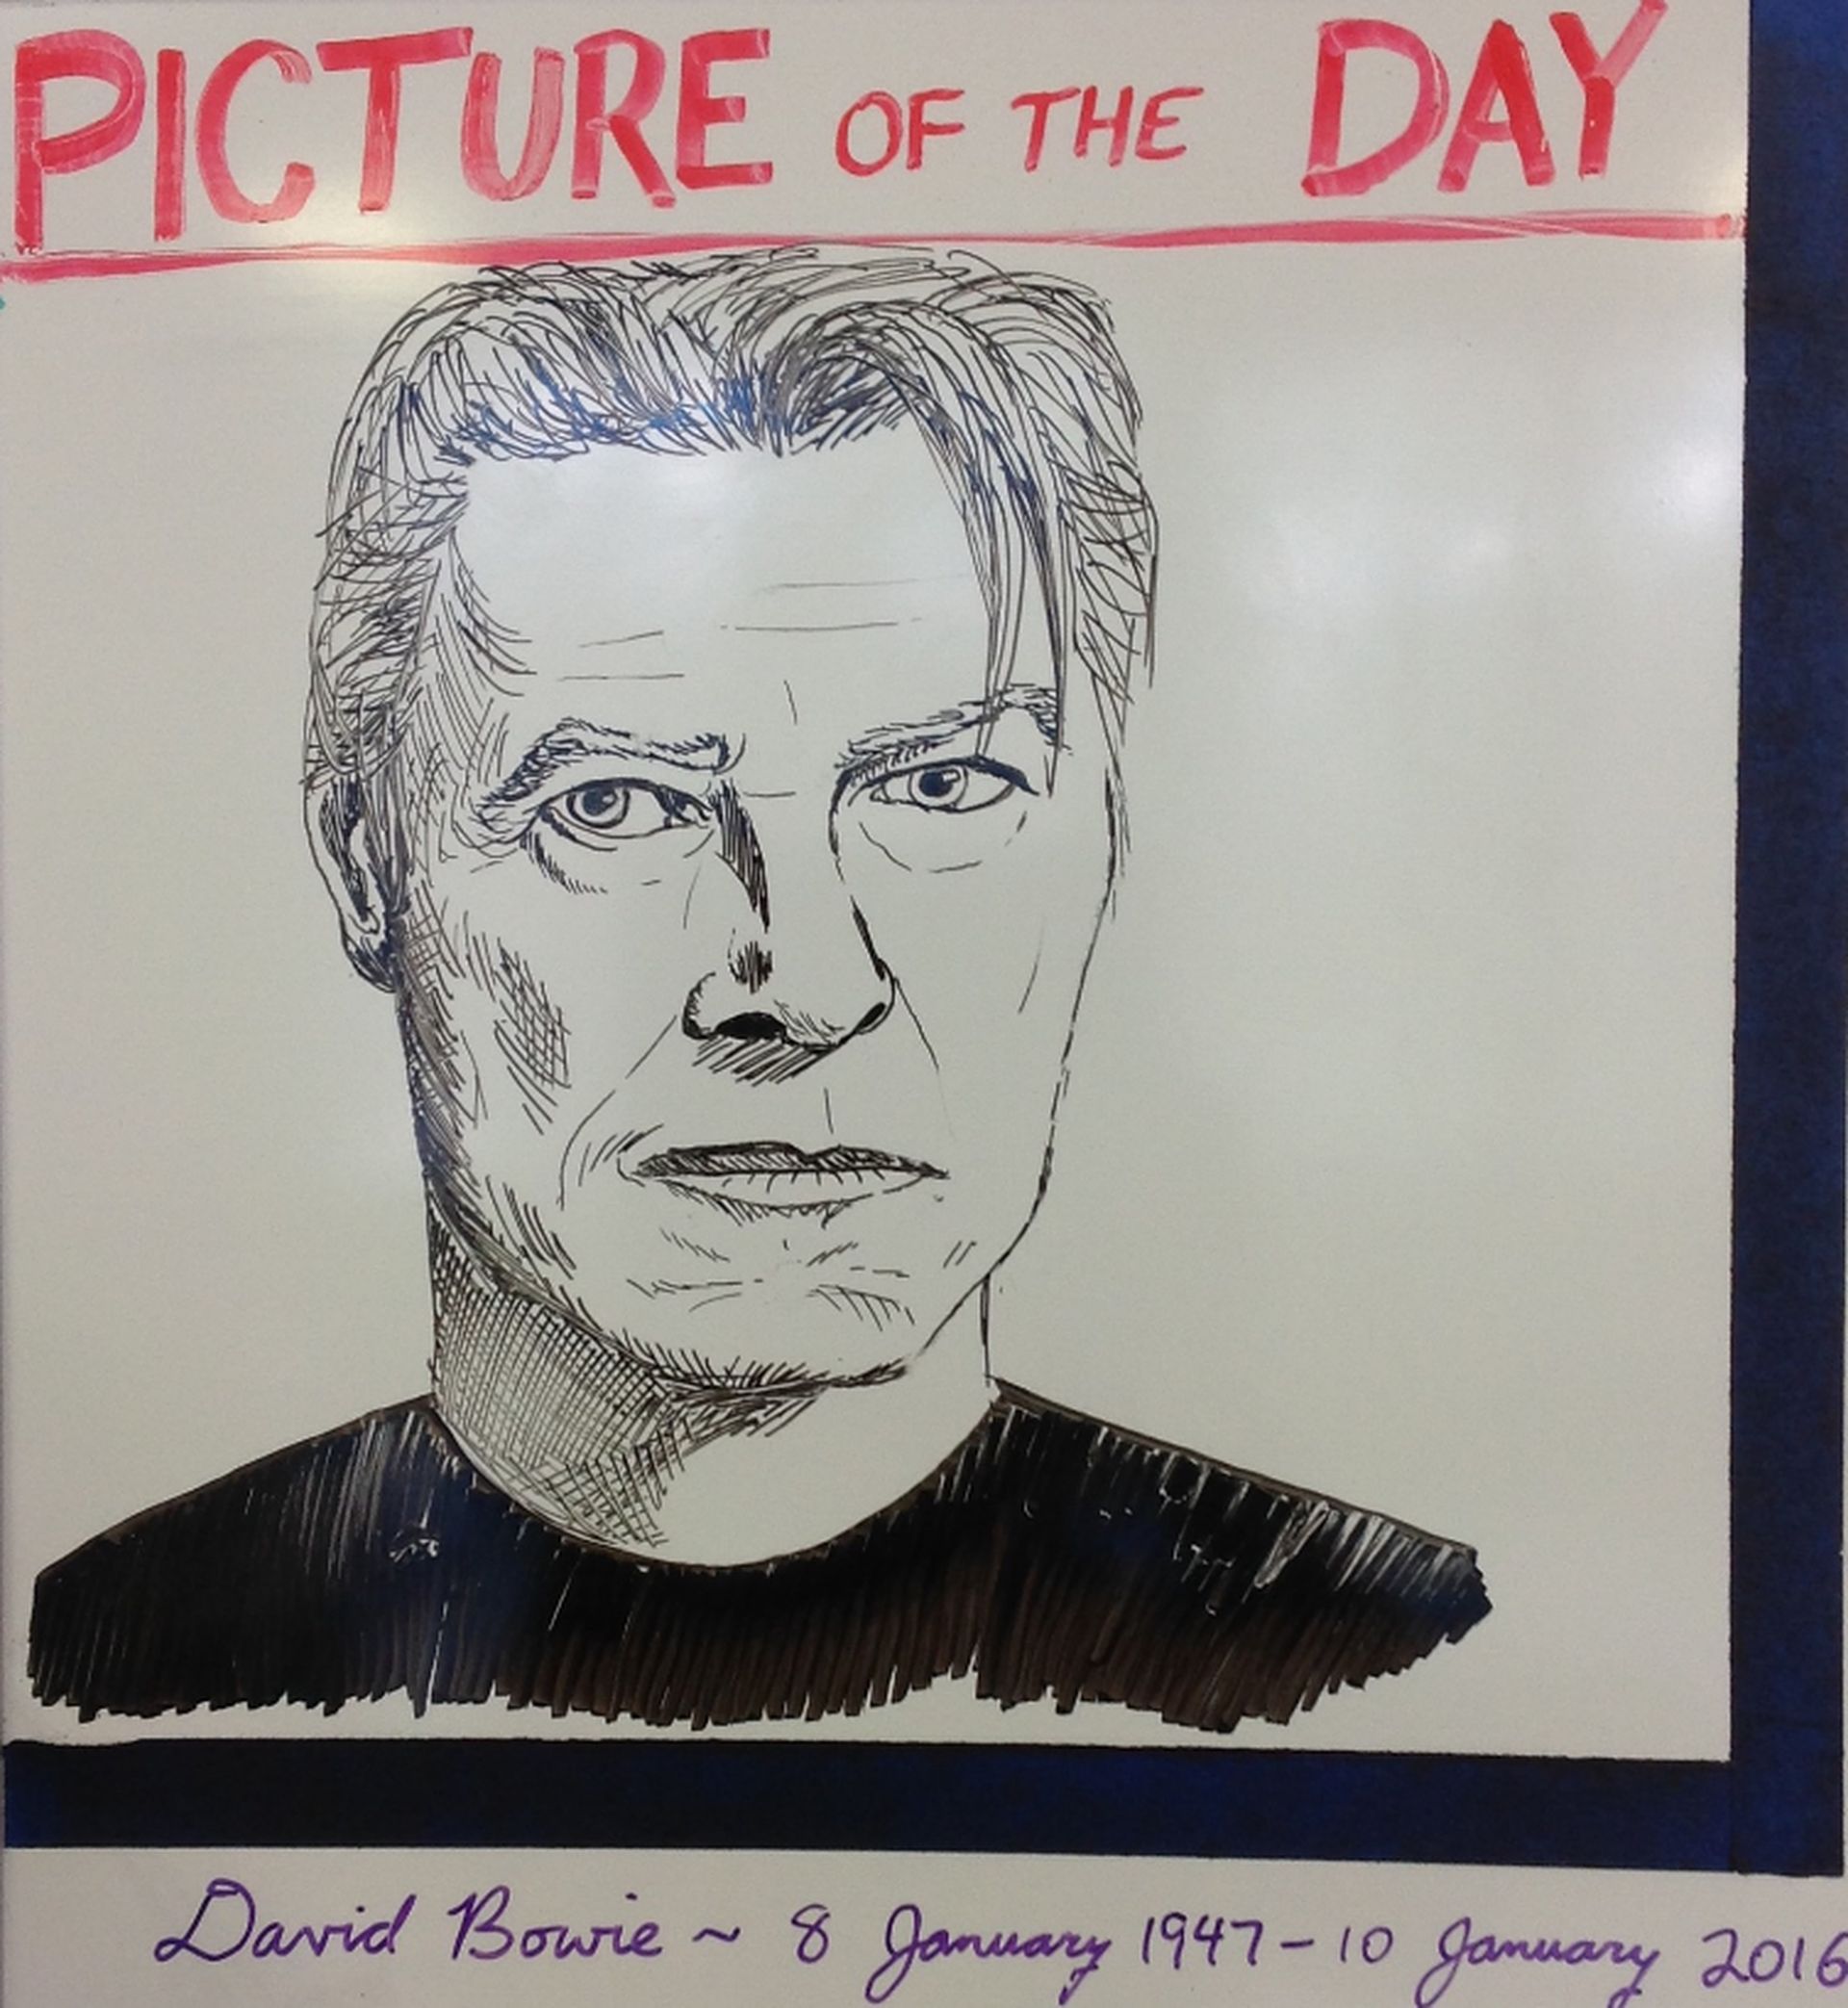 PICTURE OF THE DAY
David Bowie ~ 8 January 1947 - 10 January 2016